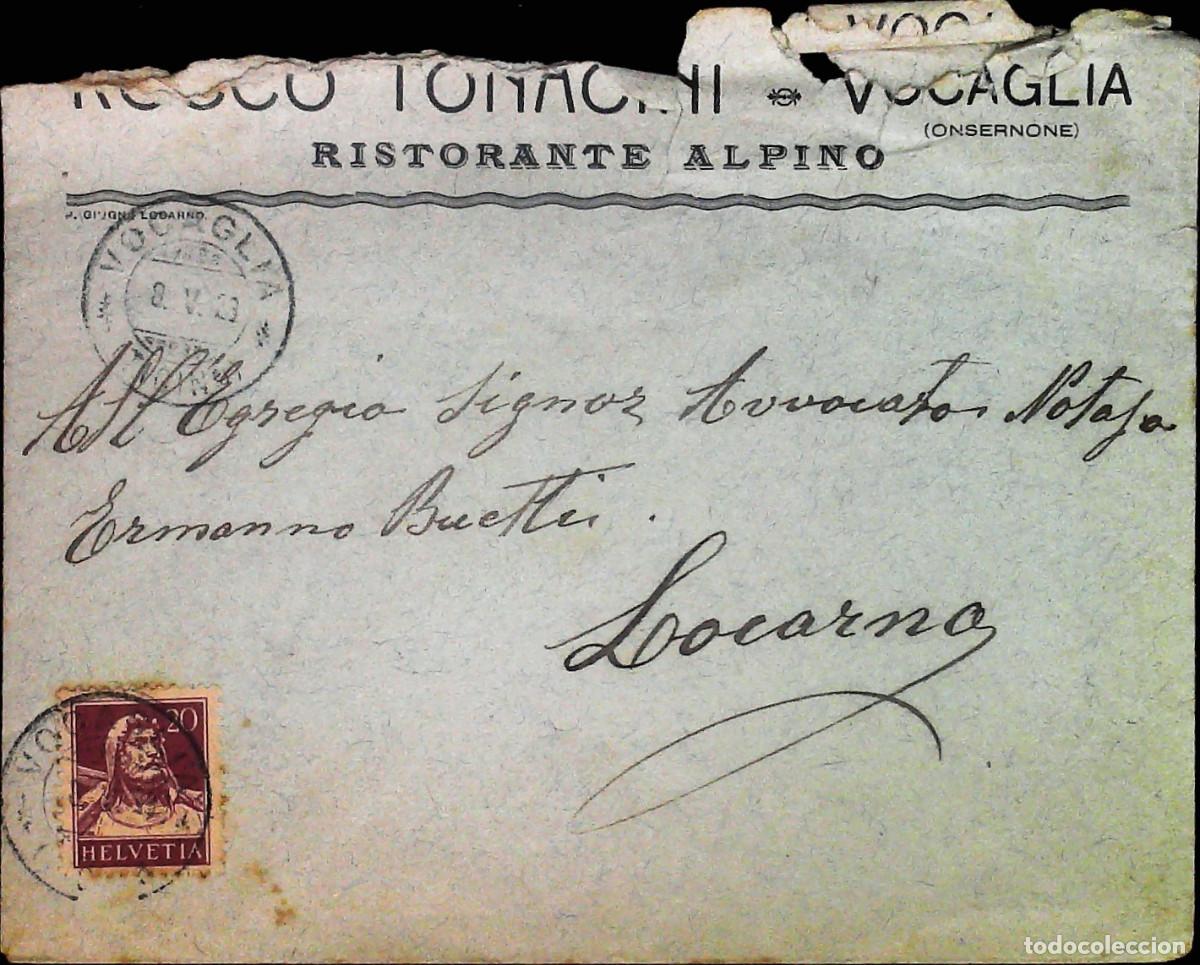 VOCA
ROCCO TONACINI * VOCAGLIA
(ONSERNONE)
RISTORANTE ALPINO
LOCARNO.
VOCAGLIA
8. V. 23
All'Egregio Signor Avvocato Notajo
Ermanno Buetti.
Locarno
20
HELVETIA
VOC
todocoleccion